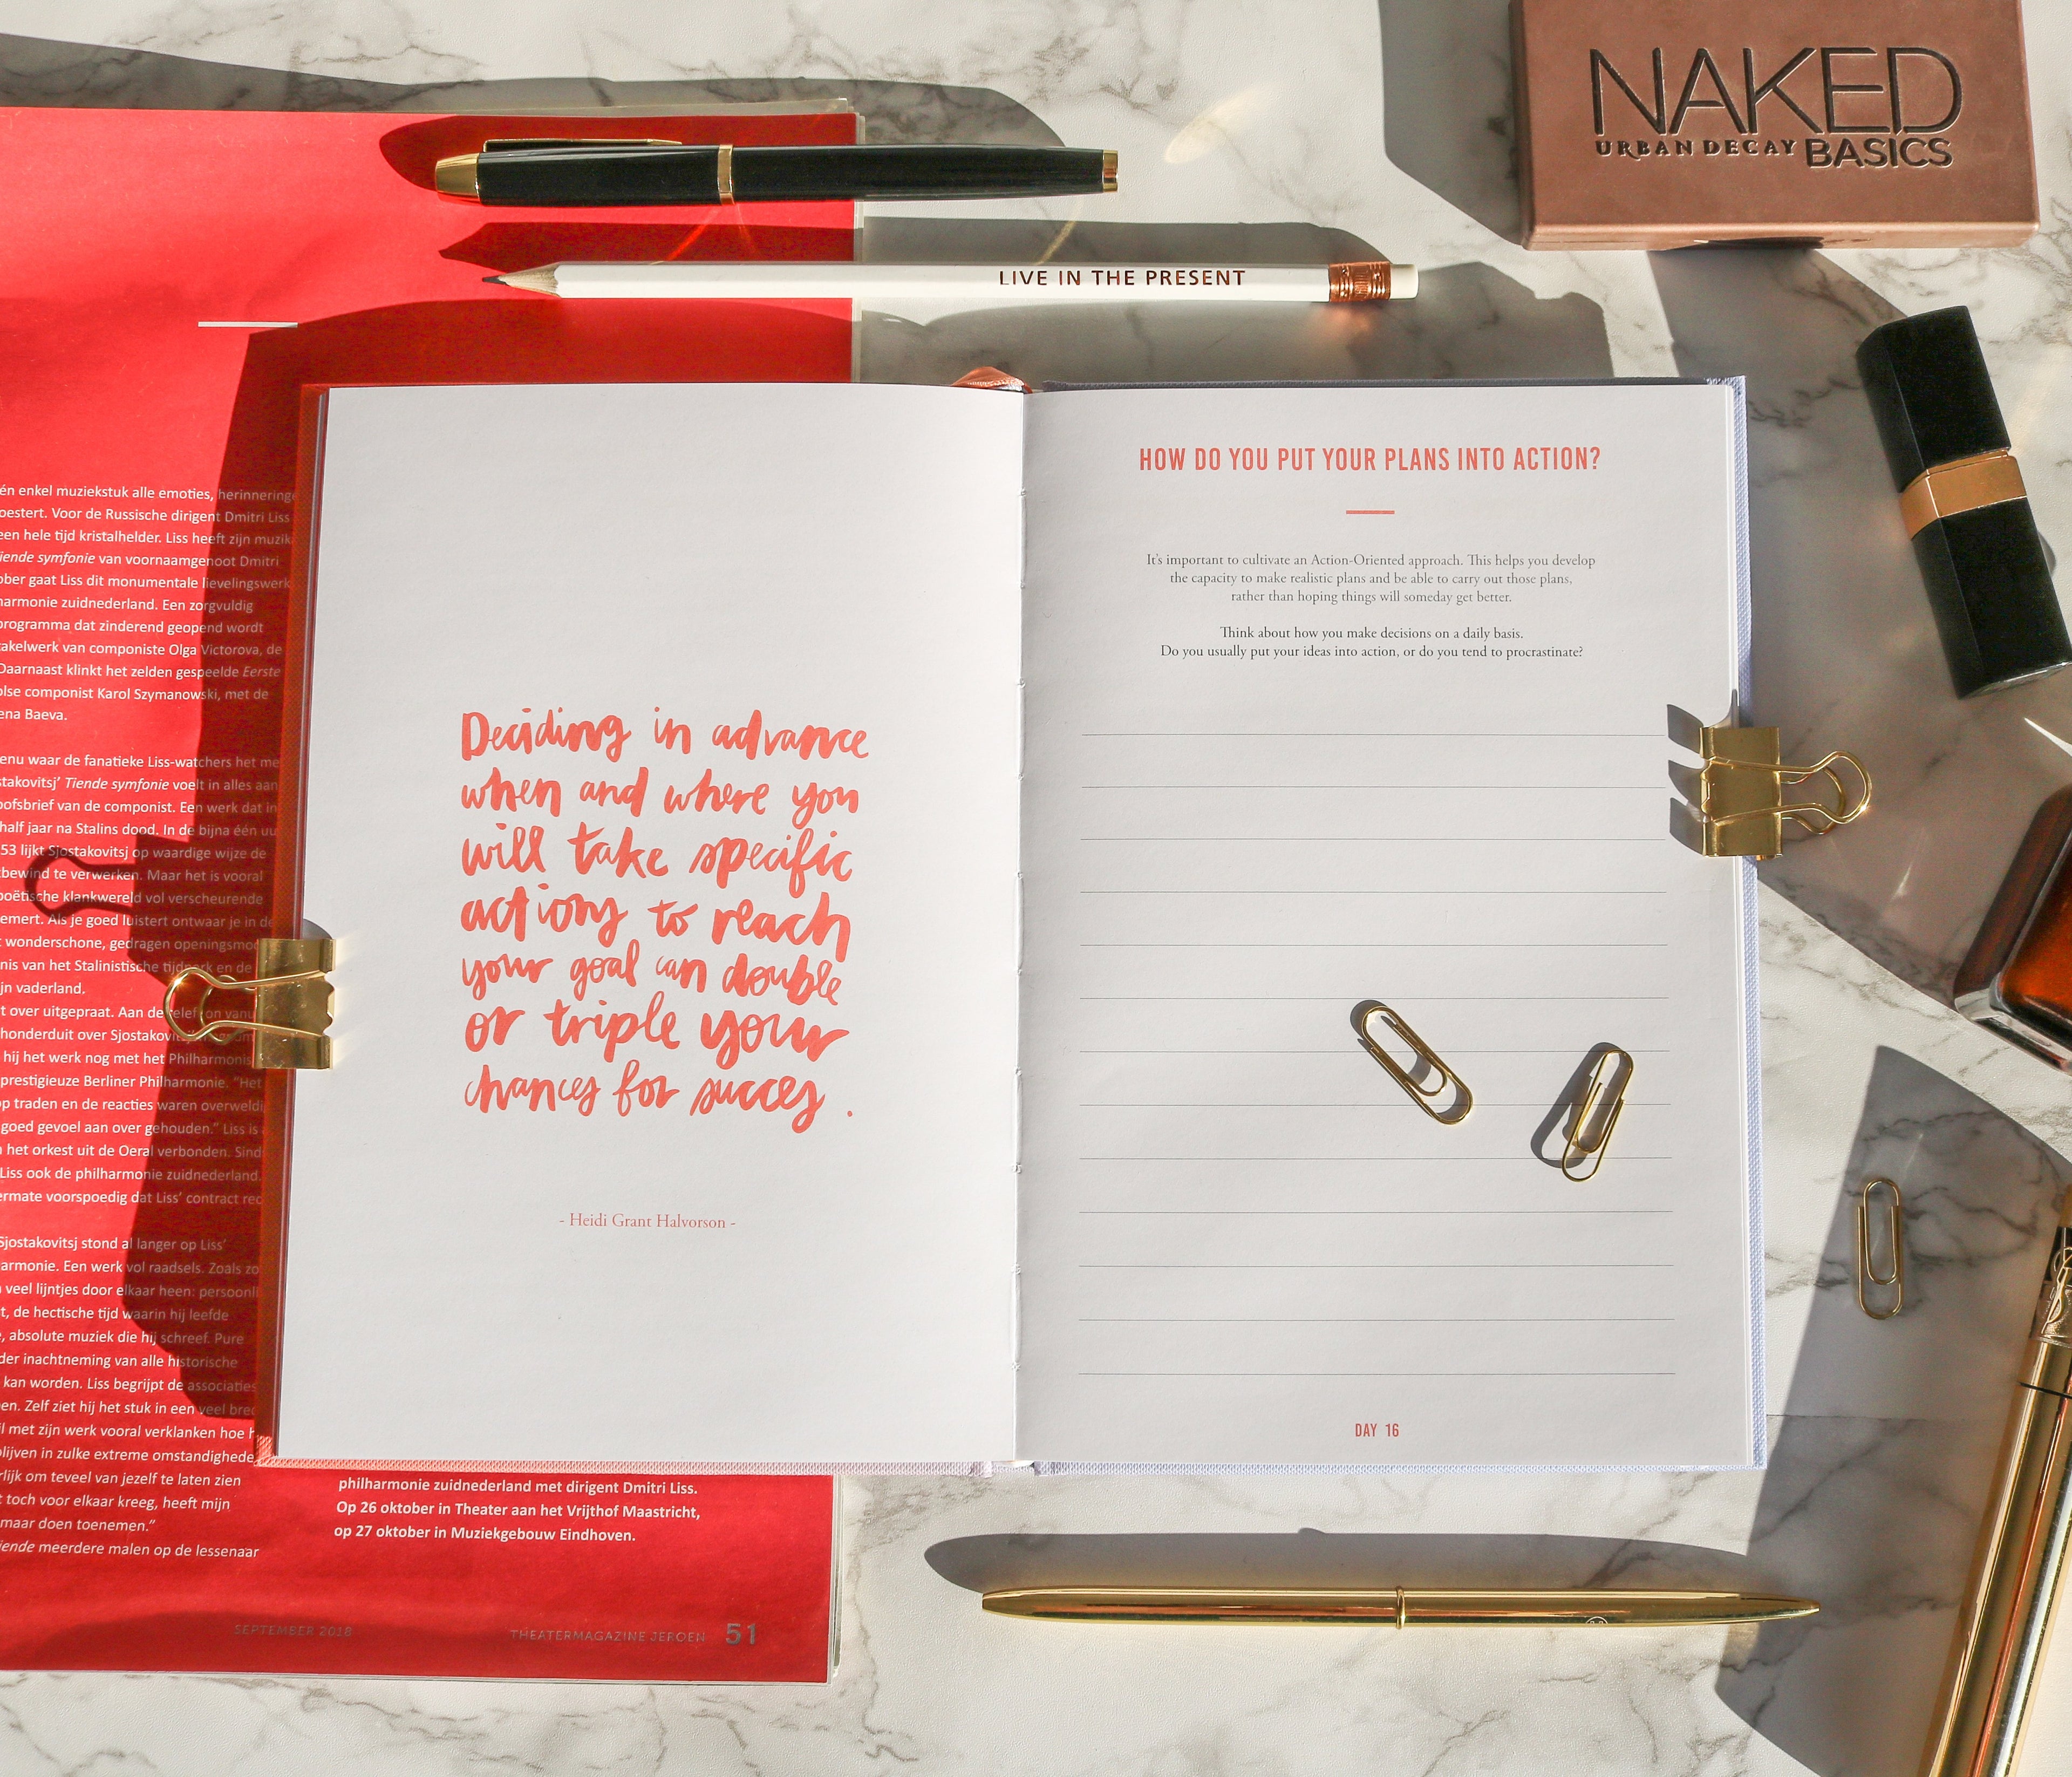 NAKED
URBAN DECAY BASICS
LIVE IN THE PRESENT
én enkel muziekstuk alle emoties, herinneringe
oestert. Voor de Russische dirigent Dmitri Liss
een hele tijd kristalhelder. Liss heeft zijn muzik
iende symfonie van voornaamgenoot Dmitri
ober gaat Liss dit monumentale lievelingswerk
harmonie zuidnederland. Een zorgvuldig
programma dat zinderend geopend wordt
takelwerk van componiste Olga Victorova, de
Daarnaast klinkt het zelden gespeelde Eerste
olse componist Karol Szymanowski, met de
ena Baeva.
enu waar de fanatieke Liss-watchers het me
stakovitsj' Tiende symfonie voelt in alles aan
oofsbrief van de componist. Een werk dat in
half jaar na Stalins dood. In de bijna één uu
53 lijkt Sjostakovitsj op waardige wijze de
bewind te verwerken. Maar het is vooral
poëtische klankwereld vol verscheurende
emert. Als je goed luistert ontwaar je in de
t wonderschone, gedragen openingsmo
nis van het Stalinistische tijdperk en de
ijn vaderland.
t over uitgepraat. Aan de telefoon vanu
honderduit over Sjostakovi
hij het werk nog met het Philharmonis
prestigieuze Berliner Philharmonie. "Het
op traden en de reacties waren overweldi
goed gevoel aan over gehouden." Liss is
n het orkest uit de Oeral verbonden. Sind
Liss ook de philharmonie zuidnederland.
ermate voorspoedig dat Liss' contract rec
Sjostakovitsj stond al langer op Liss'
armonie. Een werk vol raadsels. Zoals zo
n veel lijntjes door elkaar heen: persoonli
t, de hectische tijd waarin hij leefde
, absolute muziek die hij schreef. Pure
der inachtneming van alle historische
kan worden. Liss begrijpt de associaties
en. Zelf ziet hij het stuk in een veel bred
il met zijn werk vooral verklanken hoe h
blijven in zulke extreme omstandighede
rlijk om teveel van jezelf te laten zien
t toch voor elkaar kreeg, heeft mijn
maar doen toenemen."
iende meerdere malen op de lessenaar
philharmonie zuidnederland met dirigent Dmitri Liss.
Op 26 oktober in Theater aan het Vrijthof Maastricht,
op 27 oktober in Muziekgebouw Eindhoven.
SEPTEMBER 2018 THEATERMAGAZINE JEROEN 51
Deciding in advance
when and where you
will take specific
actions to reach
your goal can double
or triple your
chances for succes.
- Heidi Grant Halvorson -
HOW DO YOU PUT YOUR PLANS INTO ACTION?
It's important to cultivate an Action-Oriented approach. This helps you develop
the capacity to make realistic plans and be able to carry out those plans,
rather than hoping things will someday get better.
Think about how you make decisions on a daily basis.
Do you usually put your ideas into action, or do you tend to procrastinate?
DAY 16